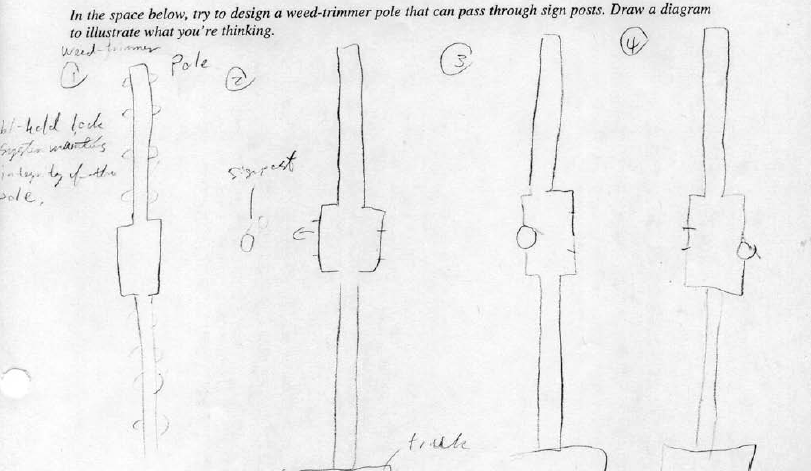 In the space below, try to design a weed-trimmer pole that can pass through sign posts. Draw a diagram
to illustrate what you're thinking.
Weed-trimmer
Pole
1
2
3
4
-held lock
System
pole,
sign post
truck